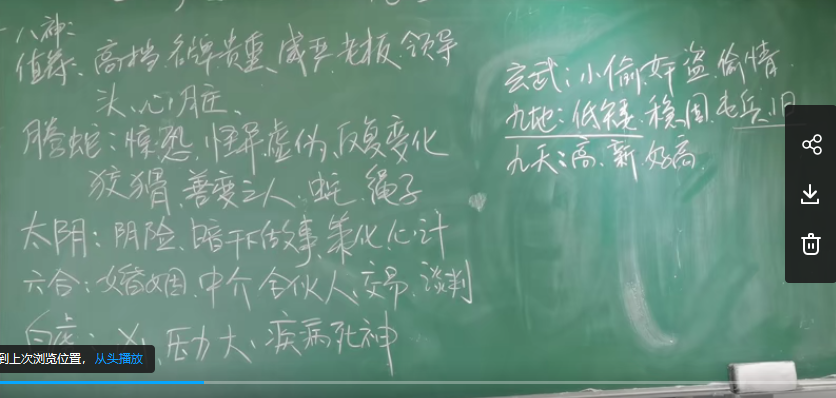 八神:
值符: 高档.名牌贵重、威严.老板.领导
头、心脏、
腾蛇: 惊恐.怪异.虚伪.反复变化
狡猾.善变之人.蛇.绳子
太阴: 阴险.暗下做事.策化.心计
六合: 婚姻.中介.合伙人.交易.谈判
白虎: 压力大、疾病死神
玄武: 小偷.奸盗.偷情.
九地: 低矮.稳固.屯兵.旧
九天: 高.新.好高.
到上次浏览位置，从头播放